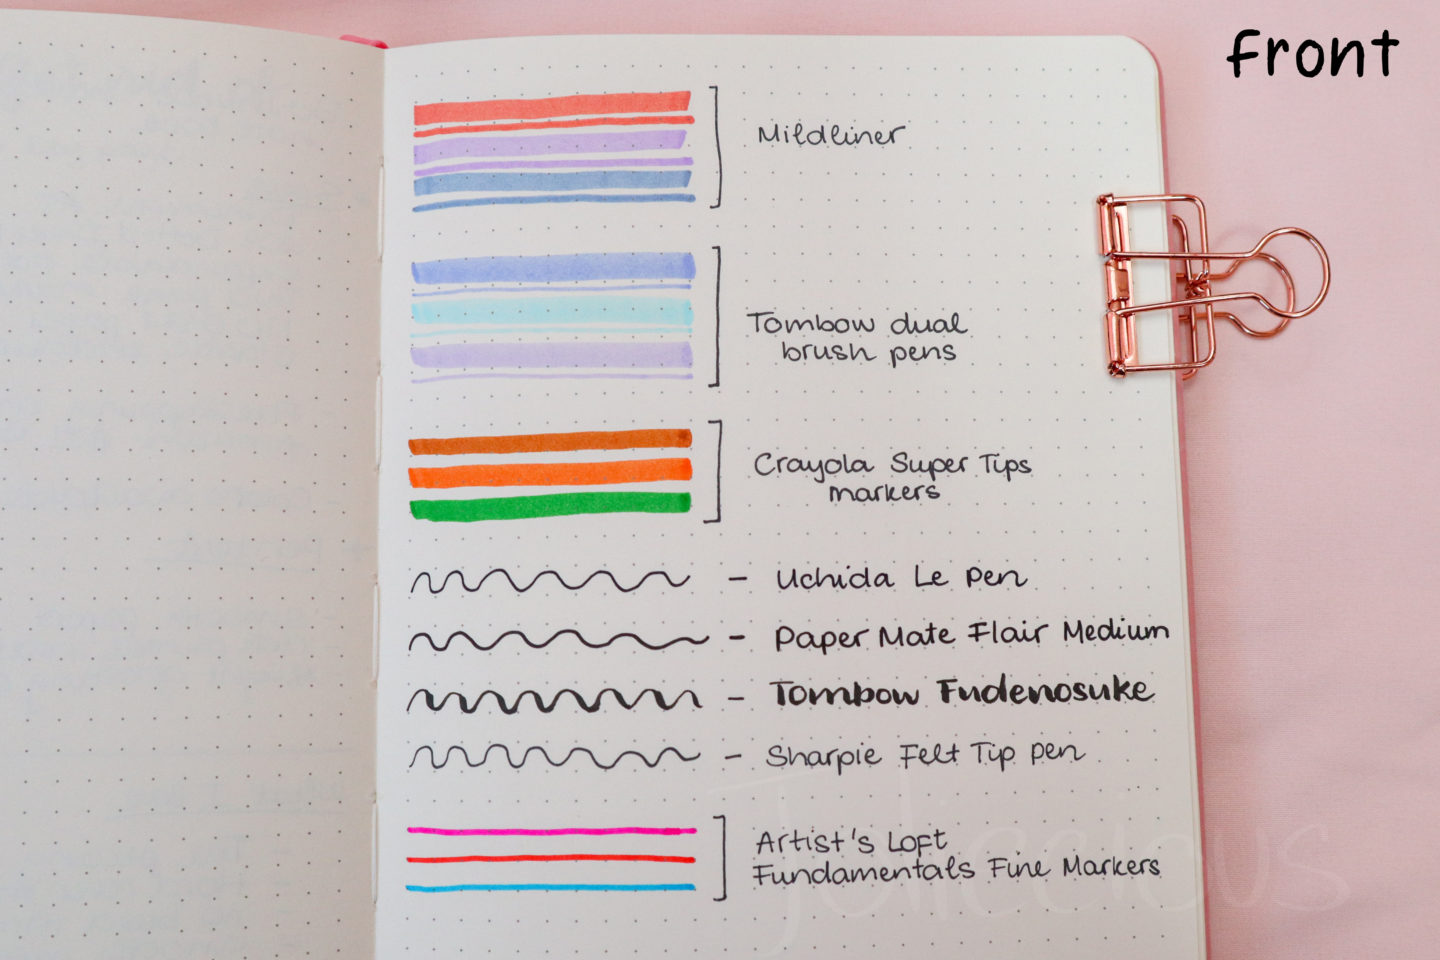 Front
Mildliner
Tombow dual
brush pens
Crayola Super Tips
markers
- Uchida Le pen
- Paper Mate Flair Medium
- Tombow Fudenosuke
- Sharpie Felt Tip pen
Artist's Loft
Fundamentals Fine Markers
Joliecious